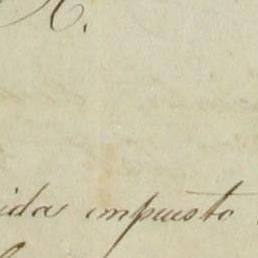 R.
ida impuesto